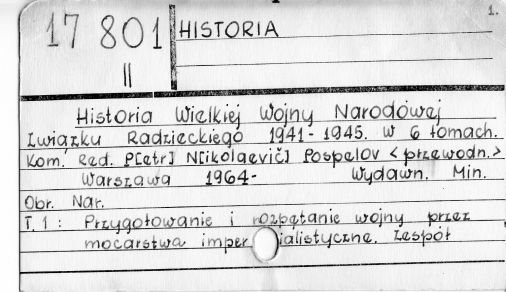 1.
17 801
II
HISTORIA
Historia Wielkiej Wojny Narodowej
Związku Radzieckiego 1941-1945. W 6 tomach.
Kom. Red. P[etr] N[ikolaevič] Pospelov <przewodn.>
Warszawa 1964- Wydawn. Min.
Obr. Nar.
T. 1: Przygotowanie i rozpętanie wojny przez
mocarstwa imperialistyczne. Zespół